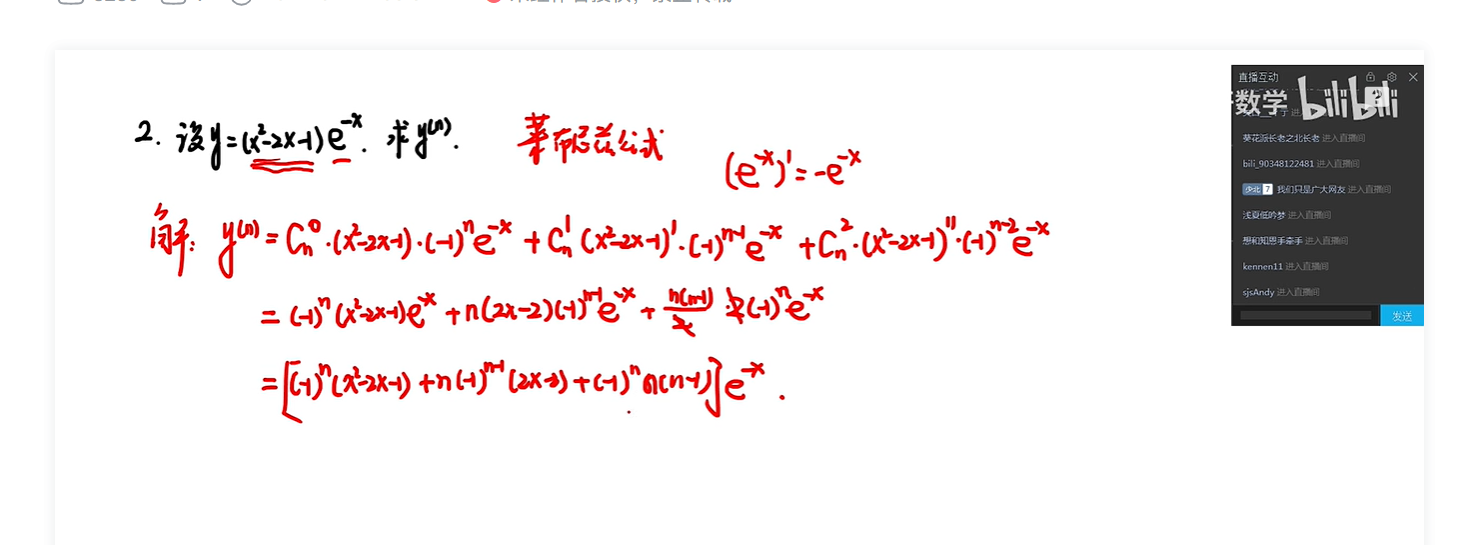 2. 设y=(x²-2x-1)e^{-x}. 求y^{(n)}. 莱布尼兹公式
(e^{-x})'=-e^{-x}
解: y^{(n)}=C_n^0·(x²-2x-1)·(-1)^n e^{-x}+C_n^1(x²-2x-1)'·(-1)^{n-1}e^{-x}+C_n^2·(x²-2x-1)''·(-1)^{n-2}e^{-x}
=(-1)^n(x²-2x-1)e^{-x}+n(2x-2)(-1)^{n-1}e^{-x}+\frac{n(n-1)}{2}·2(-1)^n e^{-x}
=[(-1)^n(x²-2x-1)+n(-1)^{n-1}(2x-2)+(-1)^n n(n-1)]e^{-x}.
直播互动
数学 bilibili
葵花派长老之北长老 进入直播间
bili_90348122481 进入直播间
少北 7 我们只是广大网友 进入直播间
浅夏低吟梦 进入直播间
想和知恩手牵手 进入直播间
kennen11 进入直播间
sjsAndy 进入直播间
发送